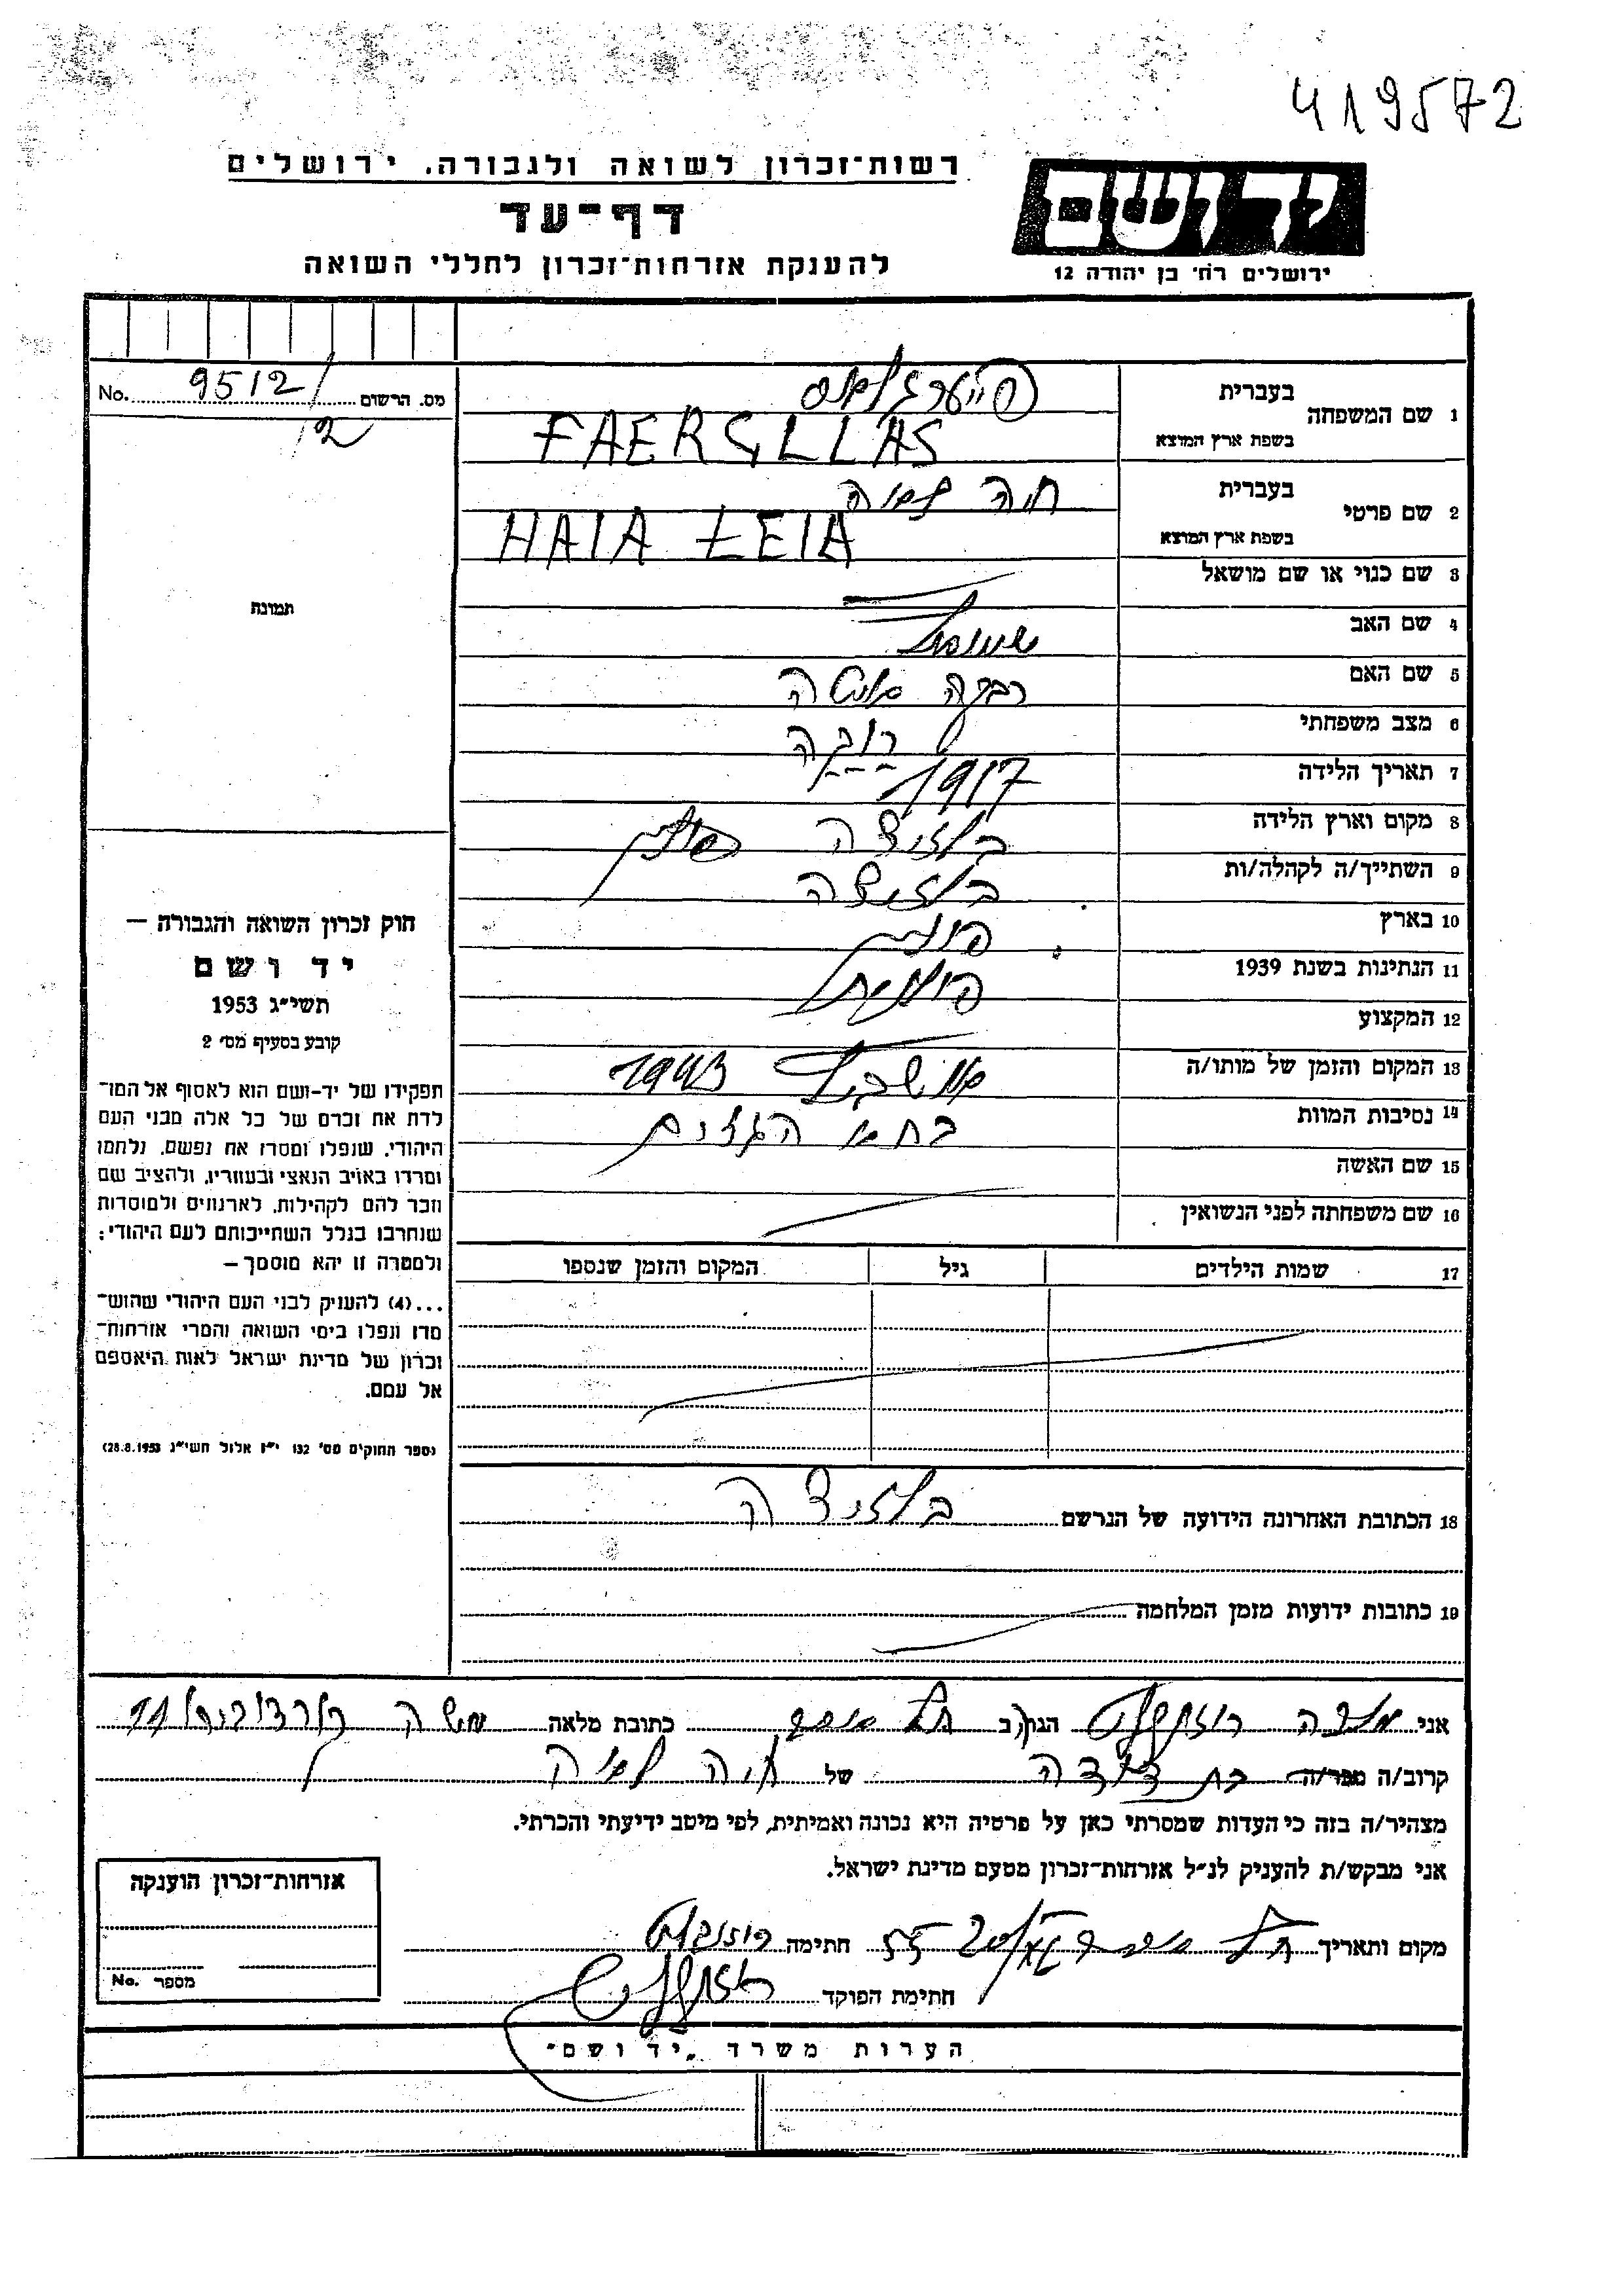 419572
רשות־זכרון לשואה ולגבורה. ירושלים
יד ושם
דף־עד
להענקת אזרחות־זכרון לחללי השואה
ירושלים רח׳ בן יהודה 12
No. 9512/ מס. הרשום
/2
1 שם המשפחה בעברית
בשפת ארץ המוצא FAERGLLAS
2 שם פרטי בעברית חיה לאה
בשפת ארץ המוצא HAIA ŁEIA
תמונה
3 שם כנוי או שם מושאל
4 שם האב שמואל
5 שם האם רבקה
6 מצב משפחתי רוקה
7 תאריך הלידה 1917
8 מקום וארץ הלידה פולין
9 השתייך/ה לקהלה/ות
10 בארץ פולין
11 הנתינות בשנת 1939 פולנית
12 המקצוע
13 המקום והזמן של מותו/ה אושביץ 1943
14 נסיבות המוות בתא הגזים
15 שם האשה
16 שם משפחתה לפני הנשואין
17 שמות הילדים גיל המקום והזמן שנספו
חוק זכרון השואה והגבורה —
יד ושם
תשי״ג 1953
קובע בסעיף מס׳ 2
תפקידו של יד-ושם הוא לאסוף אל המו־
לדת את זכרם של כל אלה מבני העם
היהודי, שנפלו ומסרו את נפשם, נלחמו
ומרדו באויב הנאצי ובעוזריו, ולהציב שם
וזכר להם לקהילות, לארגונים ולמוסדות
שנחרבו בגלל השתייכותם לעם היהודי;
ולמטרה זו יהא מוסמך —
...(4) להעניק לבני העם היהודי שהוש־
מדו ונפלו בימי השואה והמרי אזרחות־
זכרון של מדינת ישראל לאות היאספם
אל עמם.
(ספר החוקים מס׳ 132 י״ז אלול תשי״ג 28.8.1953)
18 הכתובת האחרונה הידועה של הנרשם
19 כתובות ידועות מזמן המלחמה
אני הגר/ה ב כתובת מלאה 11
קרוב/ה מפר/ה בת דודה של חיה לאה
מצהיר/ה בזה כי העדות שמסרתי כאן על פרטיה היא נכונה ואמיתית, לפי מיטב ידיעתי והכרתי.
אני מבקש/ת להעניק לנ״ל אזרחות־זכרון מטעם מדינת ישראל.
מקום ותאריך 55 חתימה
חתימת הפוקד
אזרחות־זכרון הוענקה
מספר No.
הערות משרד „יד ושם״